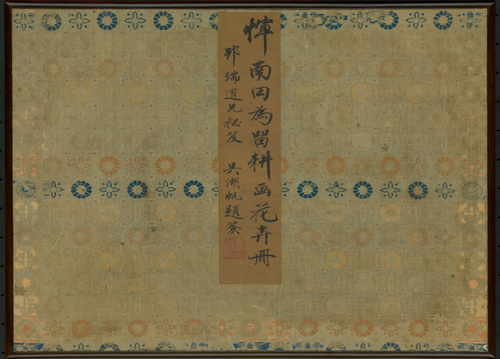 惲南田為留耕畫花卉冊
邦瑞道兄秘笈 吳湖帆題簽